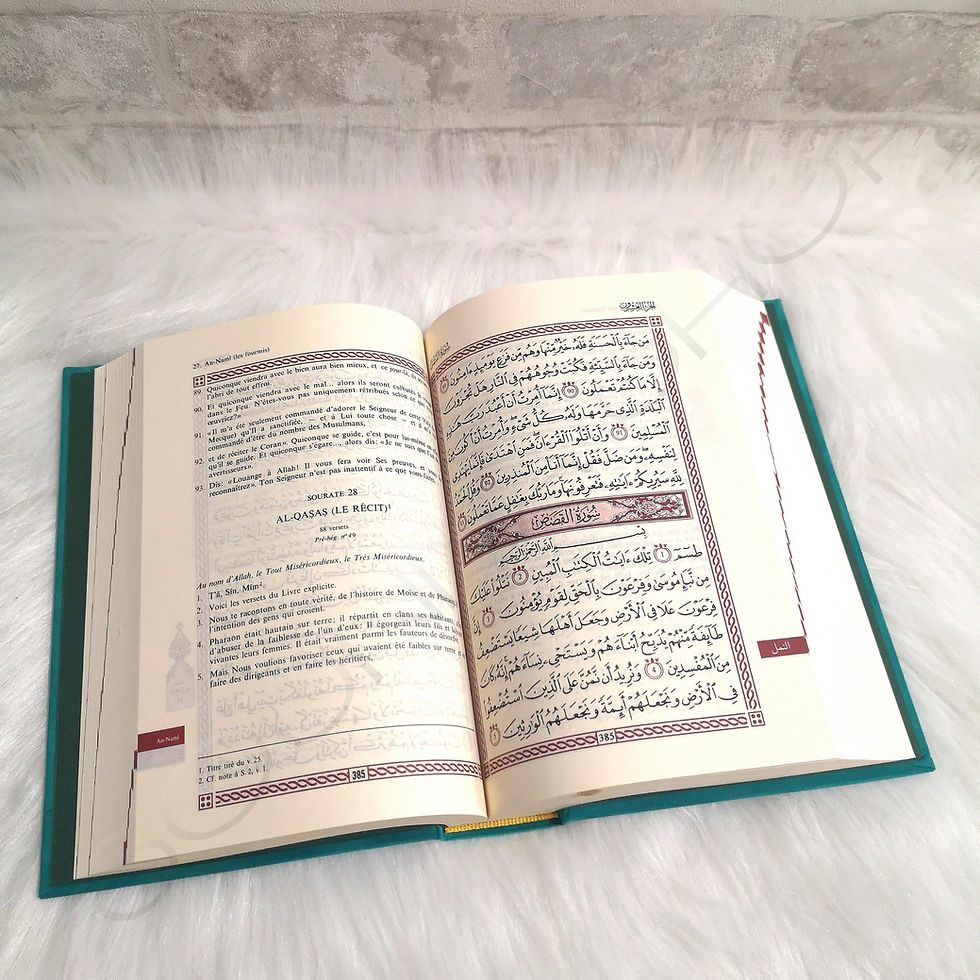 27. An-Naml (les fourmis)
89. Quiconque viendra avec le bien aura bien mieux, et ce jour-là,
l'abri de tout effroi.
90. Et quiconque viendra avec le mal... alors ils seront culbutés
dans le Feu. N'êtes-vous pas uniquement rétribués selon
œuvriez?»
91. «Il m'a été seulement commandé d'adorer le Seigneur de cette
Mecque) qu'Il a sanctifiée, — et à Lui toute chose — et
commandé d'être du nombre des Musulmans,
92. et de réciter le Coran». Quiconque se guide, c'est pour lui-même
qu'il se guide. Et quiconque s'égare..., alors dis: «Je ne suis que
avertisseurs».
93. Dis: «Louange à Allah! Il vous fera voir Ses preuves, et
reconnaîtrez». Ton Seigneur n'est pas inattentif à ce que vous
SOURATE 28
AL-QAṢAṢ (LE RÉCIT)¹
88 versets
Pré-hég. nº 49
Au nom d'Allah, le Tout Miséricordieux, le Très Miséricordieux.
1. Ṭâ, Sîn, Mîm².
2. Voici les versets du Livre explicite.
3. Nous te racontons en toute vérité, de l'histoire de Moïse et de
l'intention des gens qui croient.
4. Pharaon était hautain sur terre; il répartit en clans ses
d'abuser de la faiblesse de l'un d'eux: Il égorgeait leurs fils et
vivantes leurs femmes. Il était vraiment parmi les fauteurs de
5. Mais Nous voulions favoriser ceux qui avaient été faibles sur terre
faire des dirigeants et en faire les héritiers,
An-Naml
1. Titre tiré du v. 25.
2. Cf. note à S. 2, v. 1.
385
الجزء العشرون
مَن جَاءَ بِالْحَسَنَةِ فَلَهُ خَيْرٌ مِّنْهَا وَهُم مِّن فَزَعٍ يَوْمَئِذٍ ءَامِنُونَ ٨٩
وَمَن جَاءَ بِالسَّيِّئَةِ فَكُبَّتْ وُجُوهُهُمْ فِي النَّارِ هَلْ تُجْزَوْنَ
إِلَّا مَا كُنتُمْ تَعْمَلُونَ ٩٠ إِنَّمَا أُمِرْتُ أَنْ أَعْبُدَ رَبَّ هَذِهِ
الْبَلْدَةِ الَّذِي حَرَّمَهَا وَلَهُ كُلُّ شَيْءٍ وَأُمِرْتُ أَنْ أَكُونَ مِنَ
الْمُسْلِمِينَ ٩١ وَأَنْ أَتْلُوَا الْقُرْءَانَ فَمَنِ اهْتَدَى فَإِنَّمَا يَهْتَدِي
لِنَفْسِهِ وَمَن ضَلَّ فَقُلْ إِنَّمَا أَنَا مِنَ الْمُنذِرِينَ ٩٢ وَقُلِ الْحَمْدُ
لِلَّهِ سَيُرِيكُمْ ءَايَتِهِ فَتَعْرِفُونَهَا وَمَا رَبُّكَ بِغَفِلٍ عَمَّا تَعْمَلُونَ ٩٣
سُورَةُ الْقَصَصِ
بِسْمِ اللَّهِ الرَّحْمَنِ الرَّحِيمِ
طسٓمٓ ١ تِلْكَ ءَايَتُ الْكِتَبِ الْمُبِينِ ٢ نَتْلُوا عَلَيْكَ
مِن نَّبَإِ مُوسَى وَفِرْعَوْنَ بِالْحَقِّ لِقَوْمٍ يُؤْمِنُونَ ٣ إِنَّ
فِرْعَوْنَ عَلَا فِي الْأَرْضِ وَجَعَلَ أَهْلَهَا شِيَعًا يَسْتَضْعِفُ
طَائِفَةً مِّنْهُمْ يُذَبِّحُ أَبْنَاءَهُمْ وَيَسْتَحْيِ نِسَاءَهُمْ إِنَّهُ كَانَ
مِنَ الْمُفْسِدِينَ ٤ وَنُرِيدُ أَن نَّمُنَّ عَلَى الَّذِينَ اسْتُضْعِفُوا
فِي الْأَرْضِ وَنَجْعَلَهُمْ أَئِمَّةً وَنَجْعَلَهُمُ الْوَرِثِينَ ٥
النمل
385